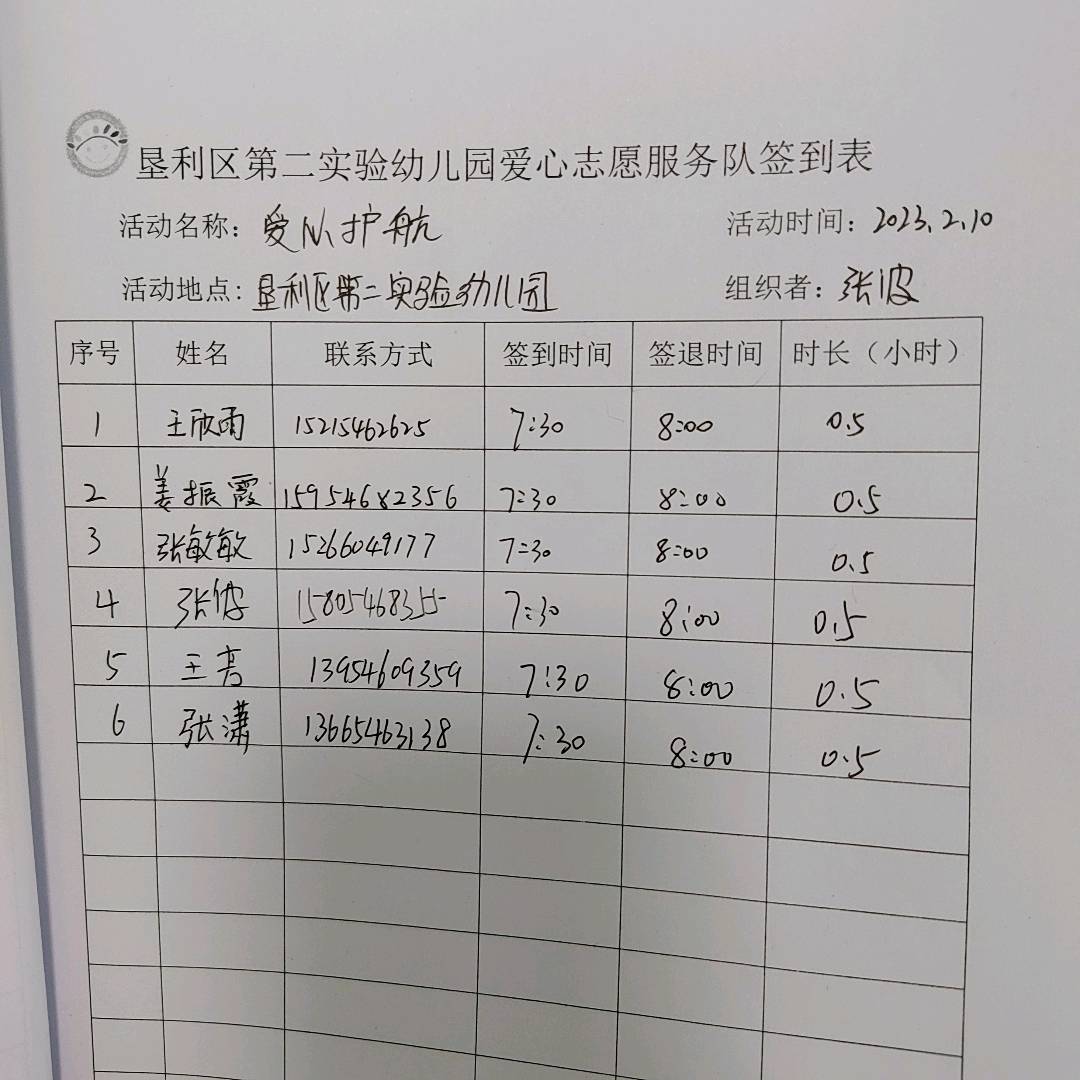 垦利区第二实验幼儿园爱心志愿服务队签到表
活动名称：爱心护航 活动时间：2023.2.10
活动地点：垦利区第二实验幼儿园 组织者：张波
序号 姓名 联系方式 签到时间 签退时间 时长（小时）
1 王欣雨 15215462625 7:30 8:00 0.5
2 姜振霞 15954682356 7:30 8:00 0.5
3 张敏敏 15266049177 7:30 8:00 0.5
4 张波 15805468355 7:30 8:00 0.5
5 王亮 13954609359 7:30 8:00 0.5
6 张潇 13665463138 7:30 8:00 0.5